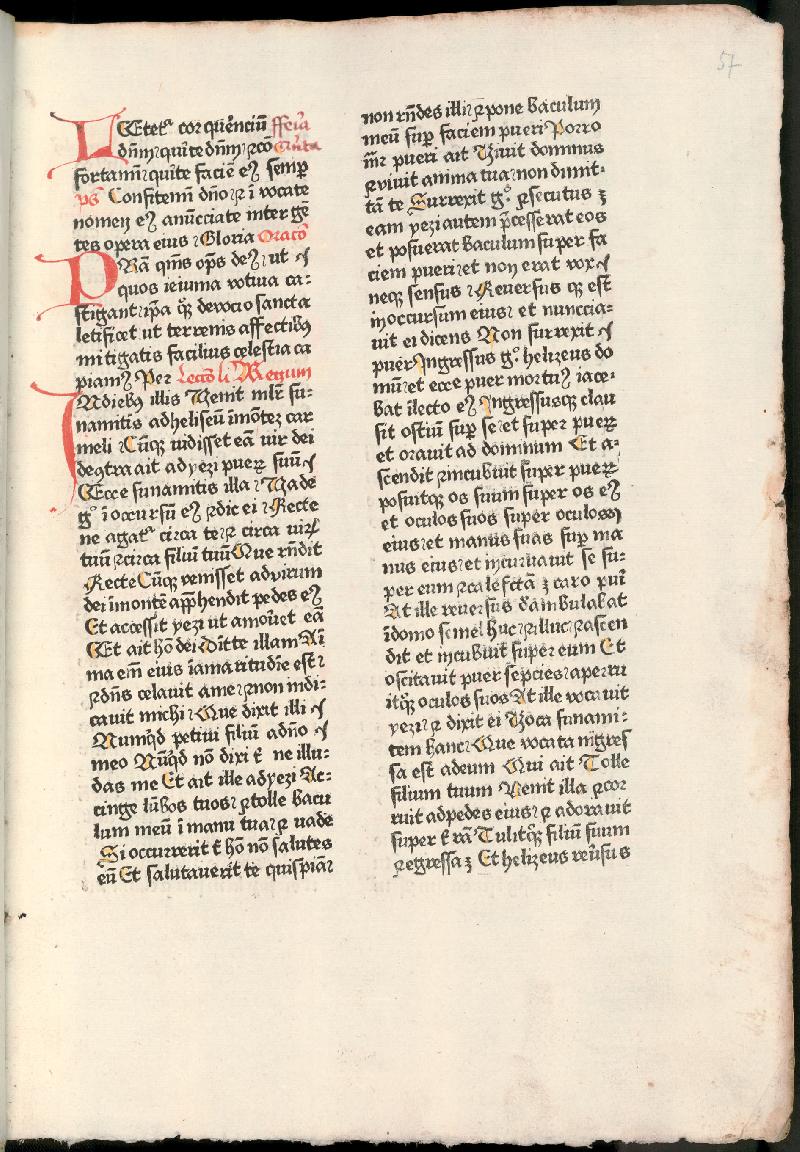 57
LEtetᷣ cor querenciū fferia
dn̄m ⁊ quirite dn̄m ⁊ cō Quinta
fortamī ⁊ quirite faciē eꝫ semꝑ
p̄s Confitemī dn̄o ⁊ ī vocate
nomen eꝫ anūcciate inter gē
tes opera eius ⁊ Gloria Oracō
PRā qm̄s op̄s deꝫ ⁊ ut
quos ieiunia votiva ca-
stigant ⁊ ip̄a qꝫ devocio sancta
letificet ut terrenis affectibꝫ
mitigatis facilius celestia ca
piamꝫ Per Lectō li Regum
INdiebꝫ illis Venit ml̄r su-
namitis ad heliseū ī mōtez car
meli ⁊ Cūqꝫ vidisset eā vir dei
de 9tra ait ad yezi pueꝝ suū
Ecce sunamitis illa ⁊ Vade
gͦ ī occursū eꝫ ⁊ dic ei ⁊ Recte
ne agatᷣ circa te ⁊ circa virū
tuū ⁊ circa filiū tuū Que rn̄dit
Recte Cūqꝫ venisset ad virum
dei ī montē app̄hendit pedes eꝫ
Et accessit yezi ut amōret eā
Et ait hō dei Dītte illam Aī
ma em̄ eius ī amaritudīe est ⁊
⁊ dn̄s celavit a me ⁊ non indi-
cavit michi ⁊ Que dixit illi
Numqd petivi filiū a dn̄o
meo Nūqd nō dixi t̄ ne illu-
das me Et ait ille ad yezi Ac-
cinge lūbos tuos ⁊ tolle bacu
lum meū ī manu tua ⁊ vade
Si occurrerit t̄ hō nō salutes
eū Et salutaverit te quispiā ⁊
non rn̄des illi ⁊ pone baculum
meū suꝑ faciem pueri Porro
mr̄ pueri ait Vivit dominus
⁊ vivit anima tua ⁊ non dimit-
tā te Surrexit gͦ ⁊ secutus ꝫ
eam yezi autem p̄cesserat eos
et posuerat baculum super fa
ciem pueri ⁊ et non erat vox
neqꝫ sensus ⁊ Reversus qꝫ est
in occursum eius ⁊ et nunccia-
vit ei dicens Non surrexit
puer Ingressus gͦ helizeus do
mū ⁊ et ecce puer mortuꝫ iace-
bat ī lecto eꝫ Ingressusqꝫ clau
sit ostiū suꝑ se ⁊ et super pueꝝ
et oravit ad dominum Et a-
scendit ⁊ incubuit super pueꝝ
posuitqꝫ os suum super os eꝫ
et oculos suos super oculos
eius ⁊ et manus suas suꝑ ma
nus eius ⁊ et incurvavit se su-
per eum ⁊ calefctā ꝫ caro puī
At ille reversus d̄ambulabat
ī domo semel huc ⁊ illuc ⁊ ascen
dit et incubuit super eum Et
oscitavit puer sepcies ⁊ aperu
itqꝫ oculos suos At ille vocavit
yezi ⁊ ⁊ dixit ei Voca sunami-
tem hanc ⁊ Que vocata nigres
sa est ad eum Qui ait Tolle
filium tuum Venit illa ⁊ cor
ruit ad pedes eius ⁊ ⁊ adoravit
super t̄rā Tulitqꝫ filiū suum
⁊ egressa ꝫ Et helizeus rev̄sus